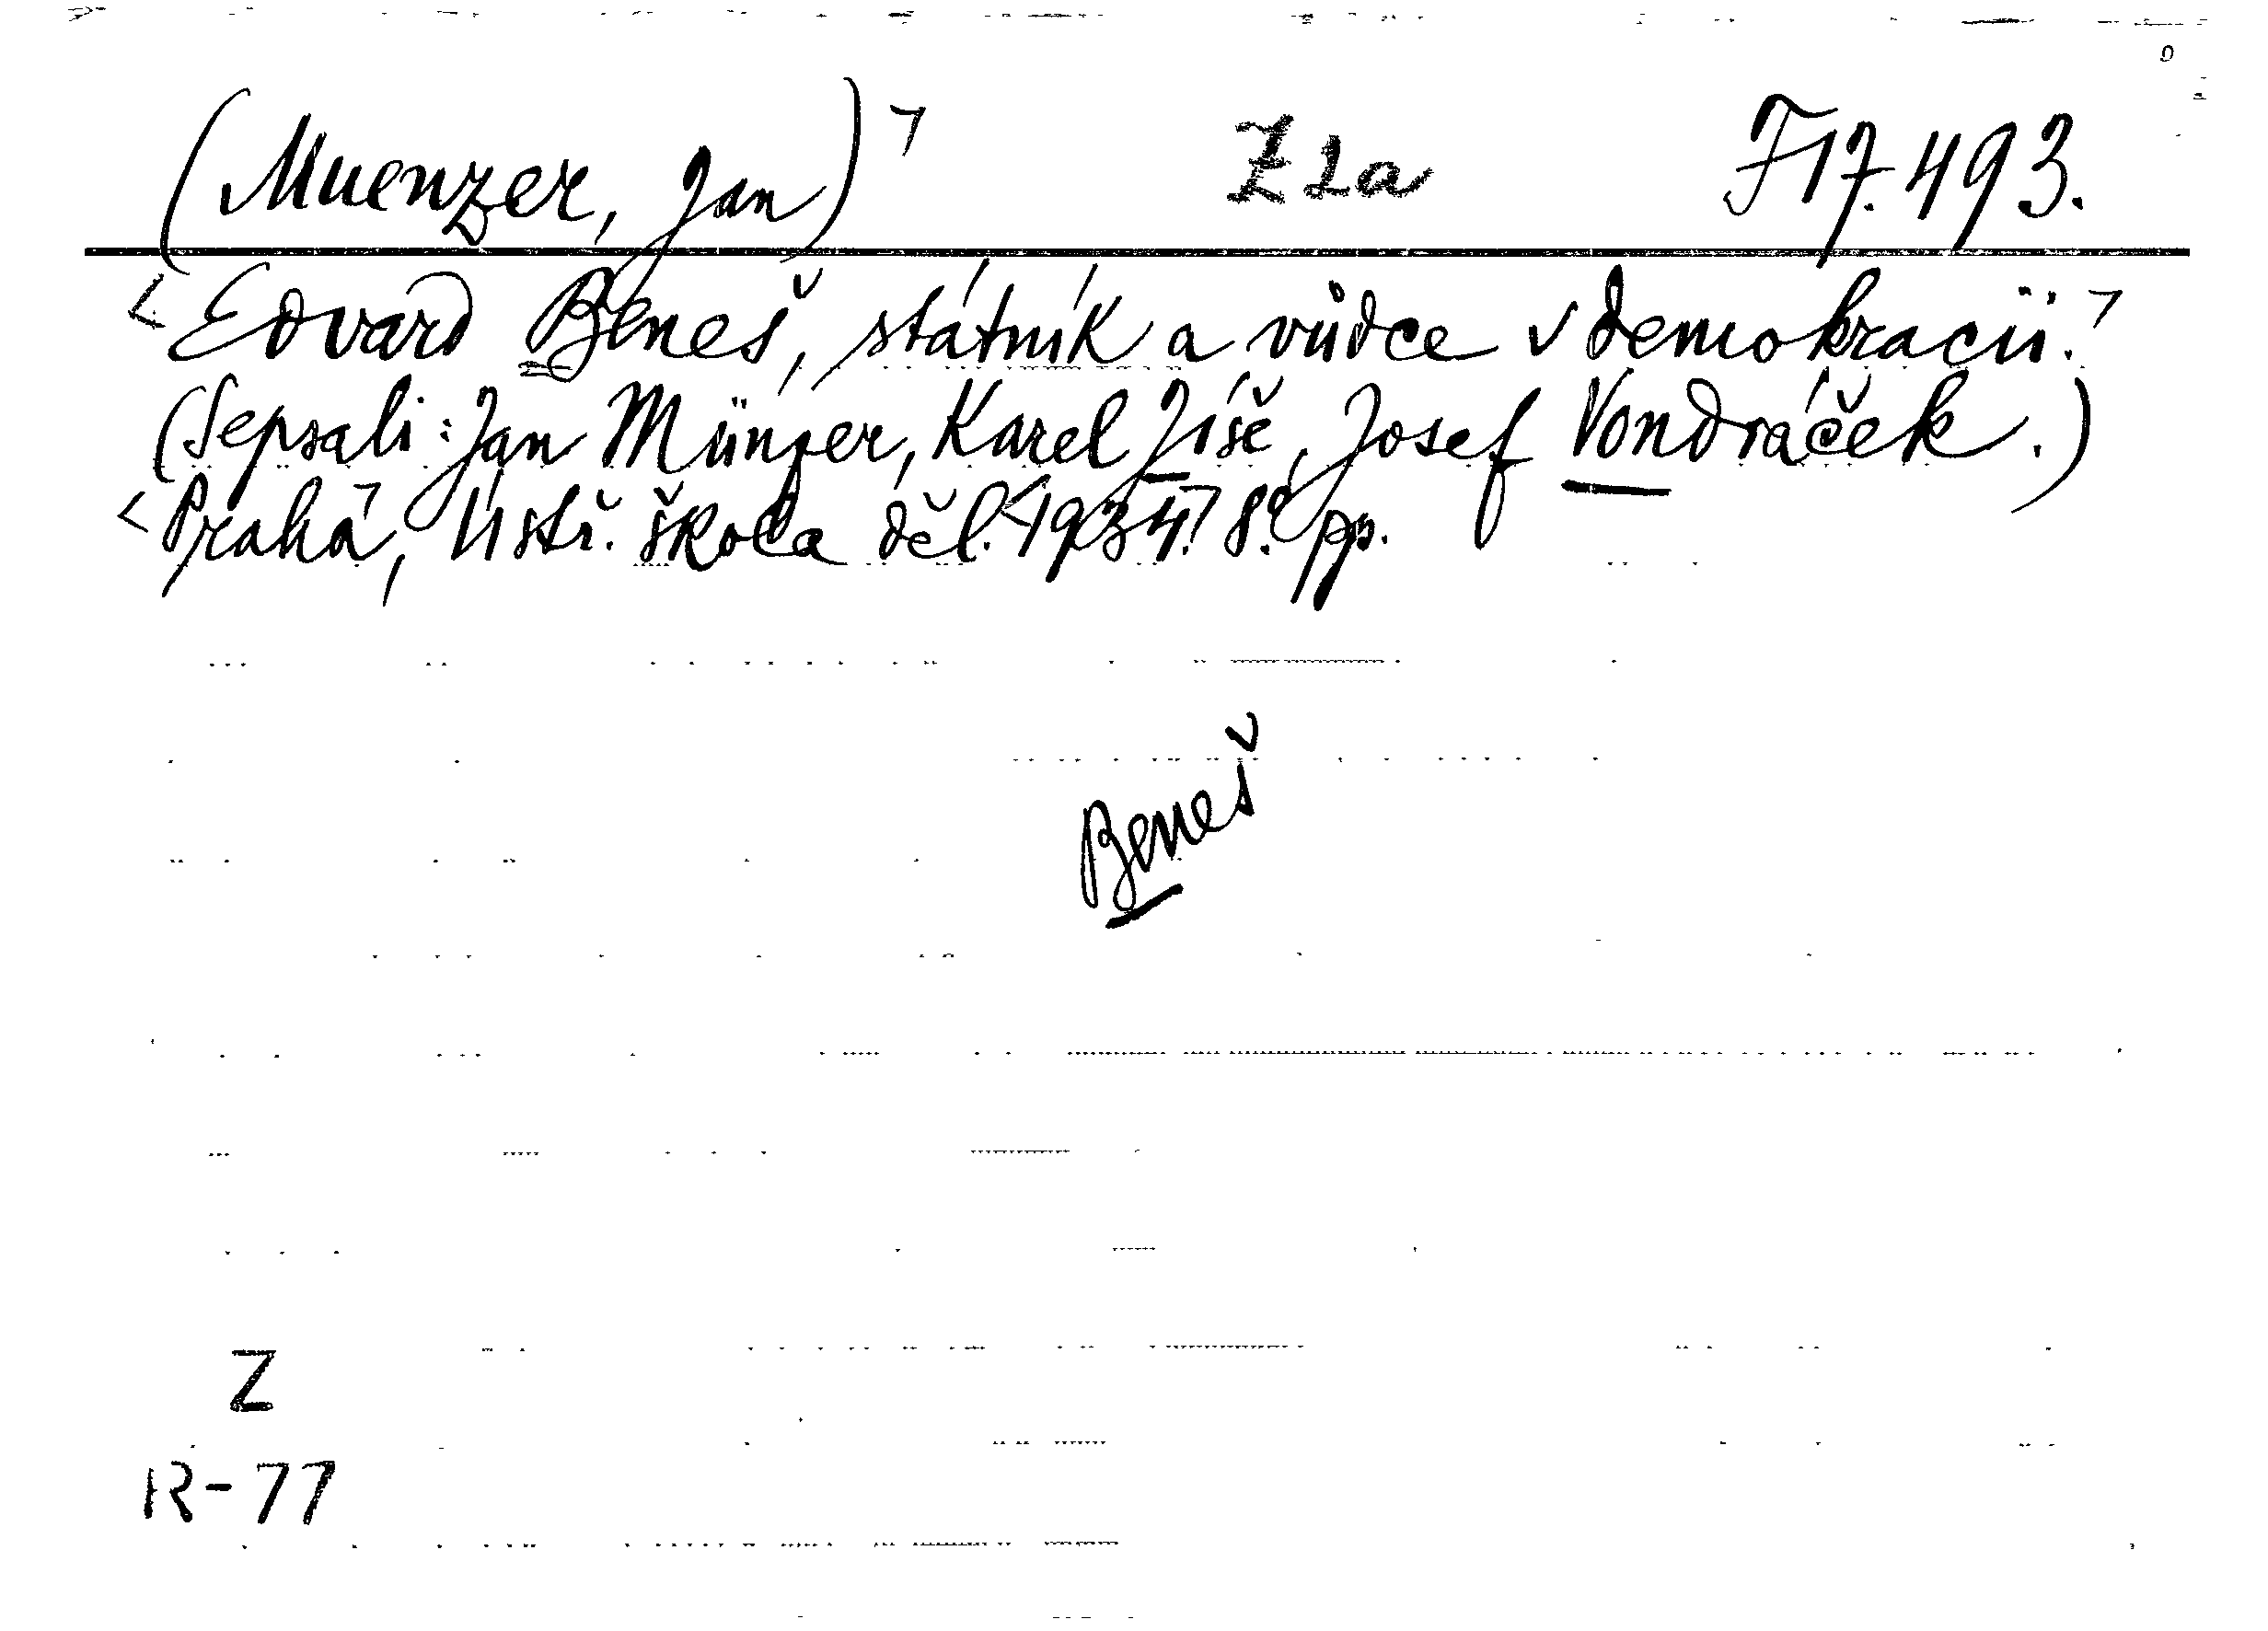 (Muenzer, Jan)⌝ Z 2a J 17.493.
<Edvard Beneš, státník a vůdce v demokracii.⌝
(Sepsali: Jan Münzer, Karel Jíše, Josef Vondráček.)
<Praha⌝, Ústř. škola děl. <1934⌝. 8°. pp.
Beneš
Z
R-77